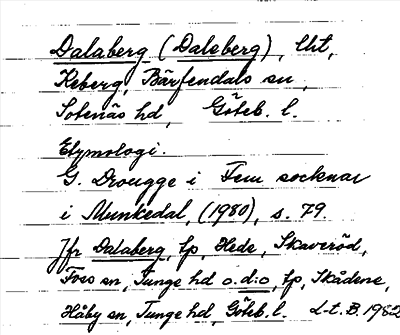 Dalaberg (Dalsberg), lht,
Keberg, Bärfendals sn,
Sotenäs hd, Göteb. l.
Etymologi.
G. Drougge i Fem socknar
i Munkedal, (1980), s. 79.
Jfr Dalaberg, lp, Hede, Skaveröd,
Foss sn, Tunge hd o.d:o, lp, Skådene,
Håby sn, Tunge hd, Göteb. l. L-t. B. 1982